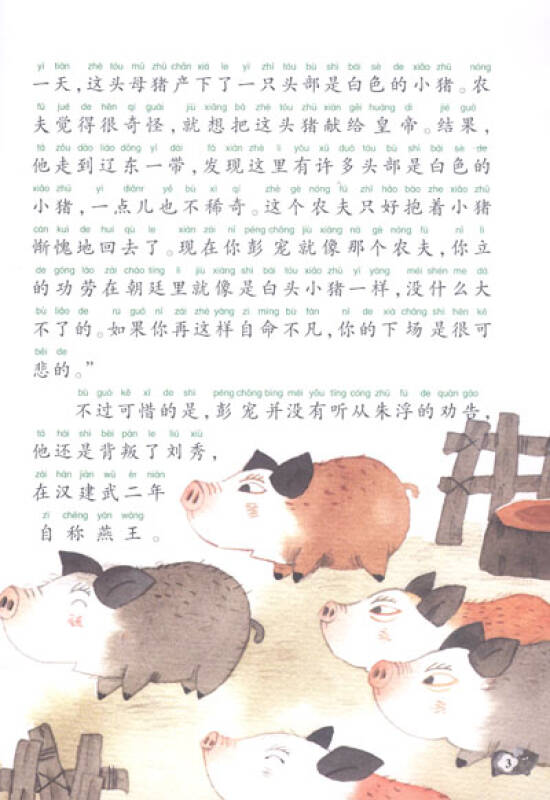 yì tiān zhè tóu mǔ zhū chǎn xià le yì zhī tóu bù shì bái sè de xiǎo zhū nóng
一天,这头母猪产下了一只头部是白色的小猪。农
fū jué de hěn qí guài jiù xiǎng bǎ zhè tóu zhū xiàn gěi huáng dì jié guǒ
夫觉得很奇怪,就想把这头猪献给皇帝。结果,
tā zǒu dào liáo dōng yí dài fā xiàn zhè lǐ yǒu xǔ duō tóu bù shì bái sè de
他走到辽东一带,发现这里有许多头部是白色的
xiǎo zhū yì diǎnr yě bù xī qí zhè gè nóng fū zhǐ hǎo bào zhe xiǎo zhū
小猪,一点儿也不稀奇。这个农夫只好抱着小猪
cán kuì de huí qù le xiàn zài nǐ péng chǒng jiù xiàng nà gè nóng fū nǐ lì
惭愧地回去了。现在你彭宠就像那个农夫,你立
de gōng láo zài cháo tíng lǐ jiù xiàng shì bái tóu xiǎo zhū yí yàng méi shén me dà
的功劳在朝廷里就像是白头小猪一样,没什么大
bù liǎo de rú guǒ nǐ zài zhè yàng zì mìng bù fán nǐ de xià chǎng shì hěn kě
不了的。如果你再这样自命不凡,你的下场是很可
bēi de
悲的。”
bú guò kě xī de shì péng chǒng bìng méi yǒu tīng cóng zhū fú de quàn gào
不过可惜的是,彭宠并没有听从朱浮的劝告,
tā hái shì bèi pàn le liú xiù
他还是背叛了刘秀,
zài hàn jiàn wǔ èr nián
在汉建武二年
zì chēng yān wáng
自称燕王。
3